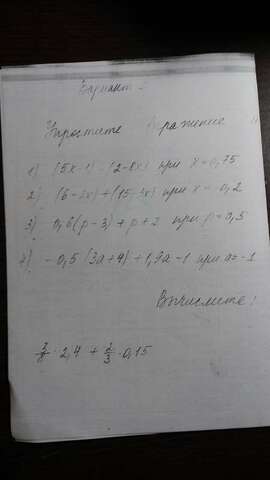 Вариант
Упростите выражение
1) (5x-1) - (2-8x) при x=0,75
2) (6-2x)+(15-3x) при x= -0,2
3) 0,6(p-3)+p+2 при p=0,5
4) -0,5(3a+4)+1,9a-1 при a=-1
Вычислите:
3/8 · 2,4 + 2/3 · 0,15